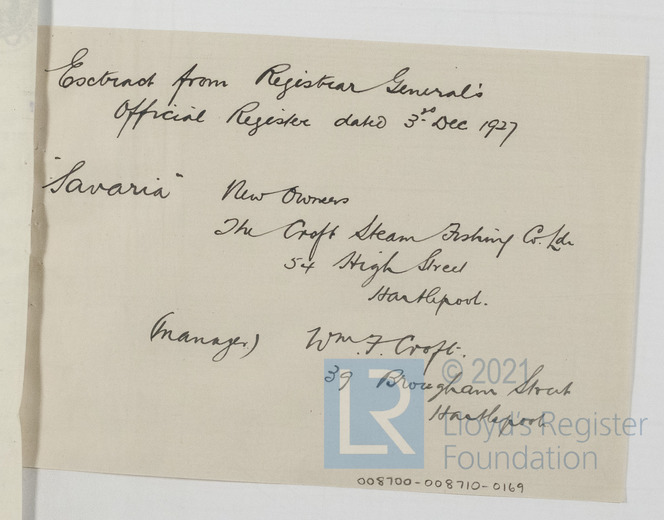 Extract from Registrar General's
Official Register dated 3rd Dec 1927
"Savaria" New Owners
The Croft Steam Fishing Co. Ld.
54 High Street
Hartlepool.
(Manager) Wm. F. Croft.
39 Brougham Street
Hartlepool
LR © 2021
Lloyd's Register
Foundation
008700-008710-0169